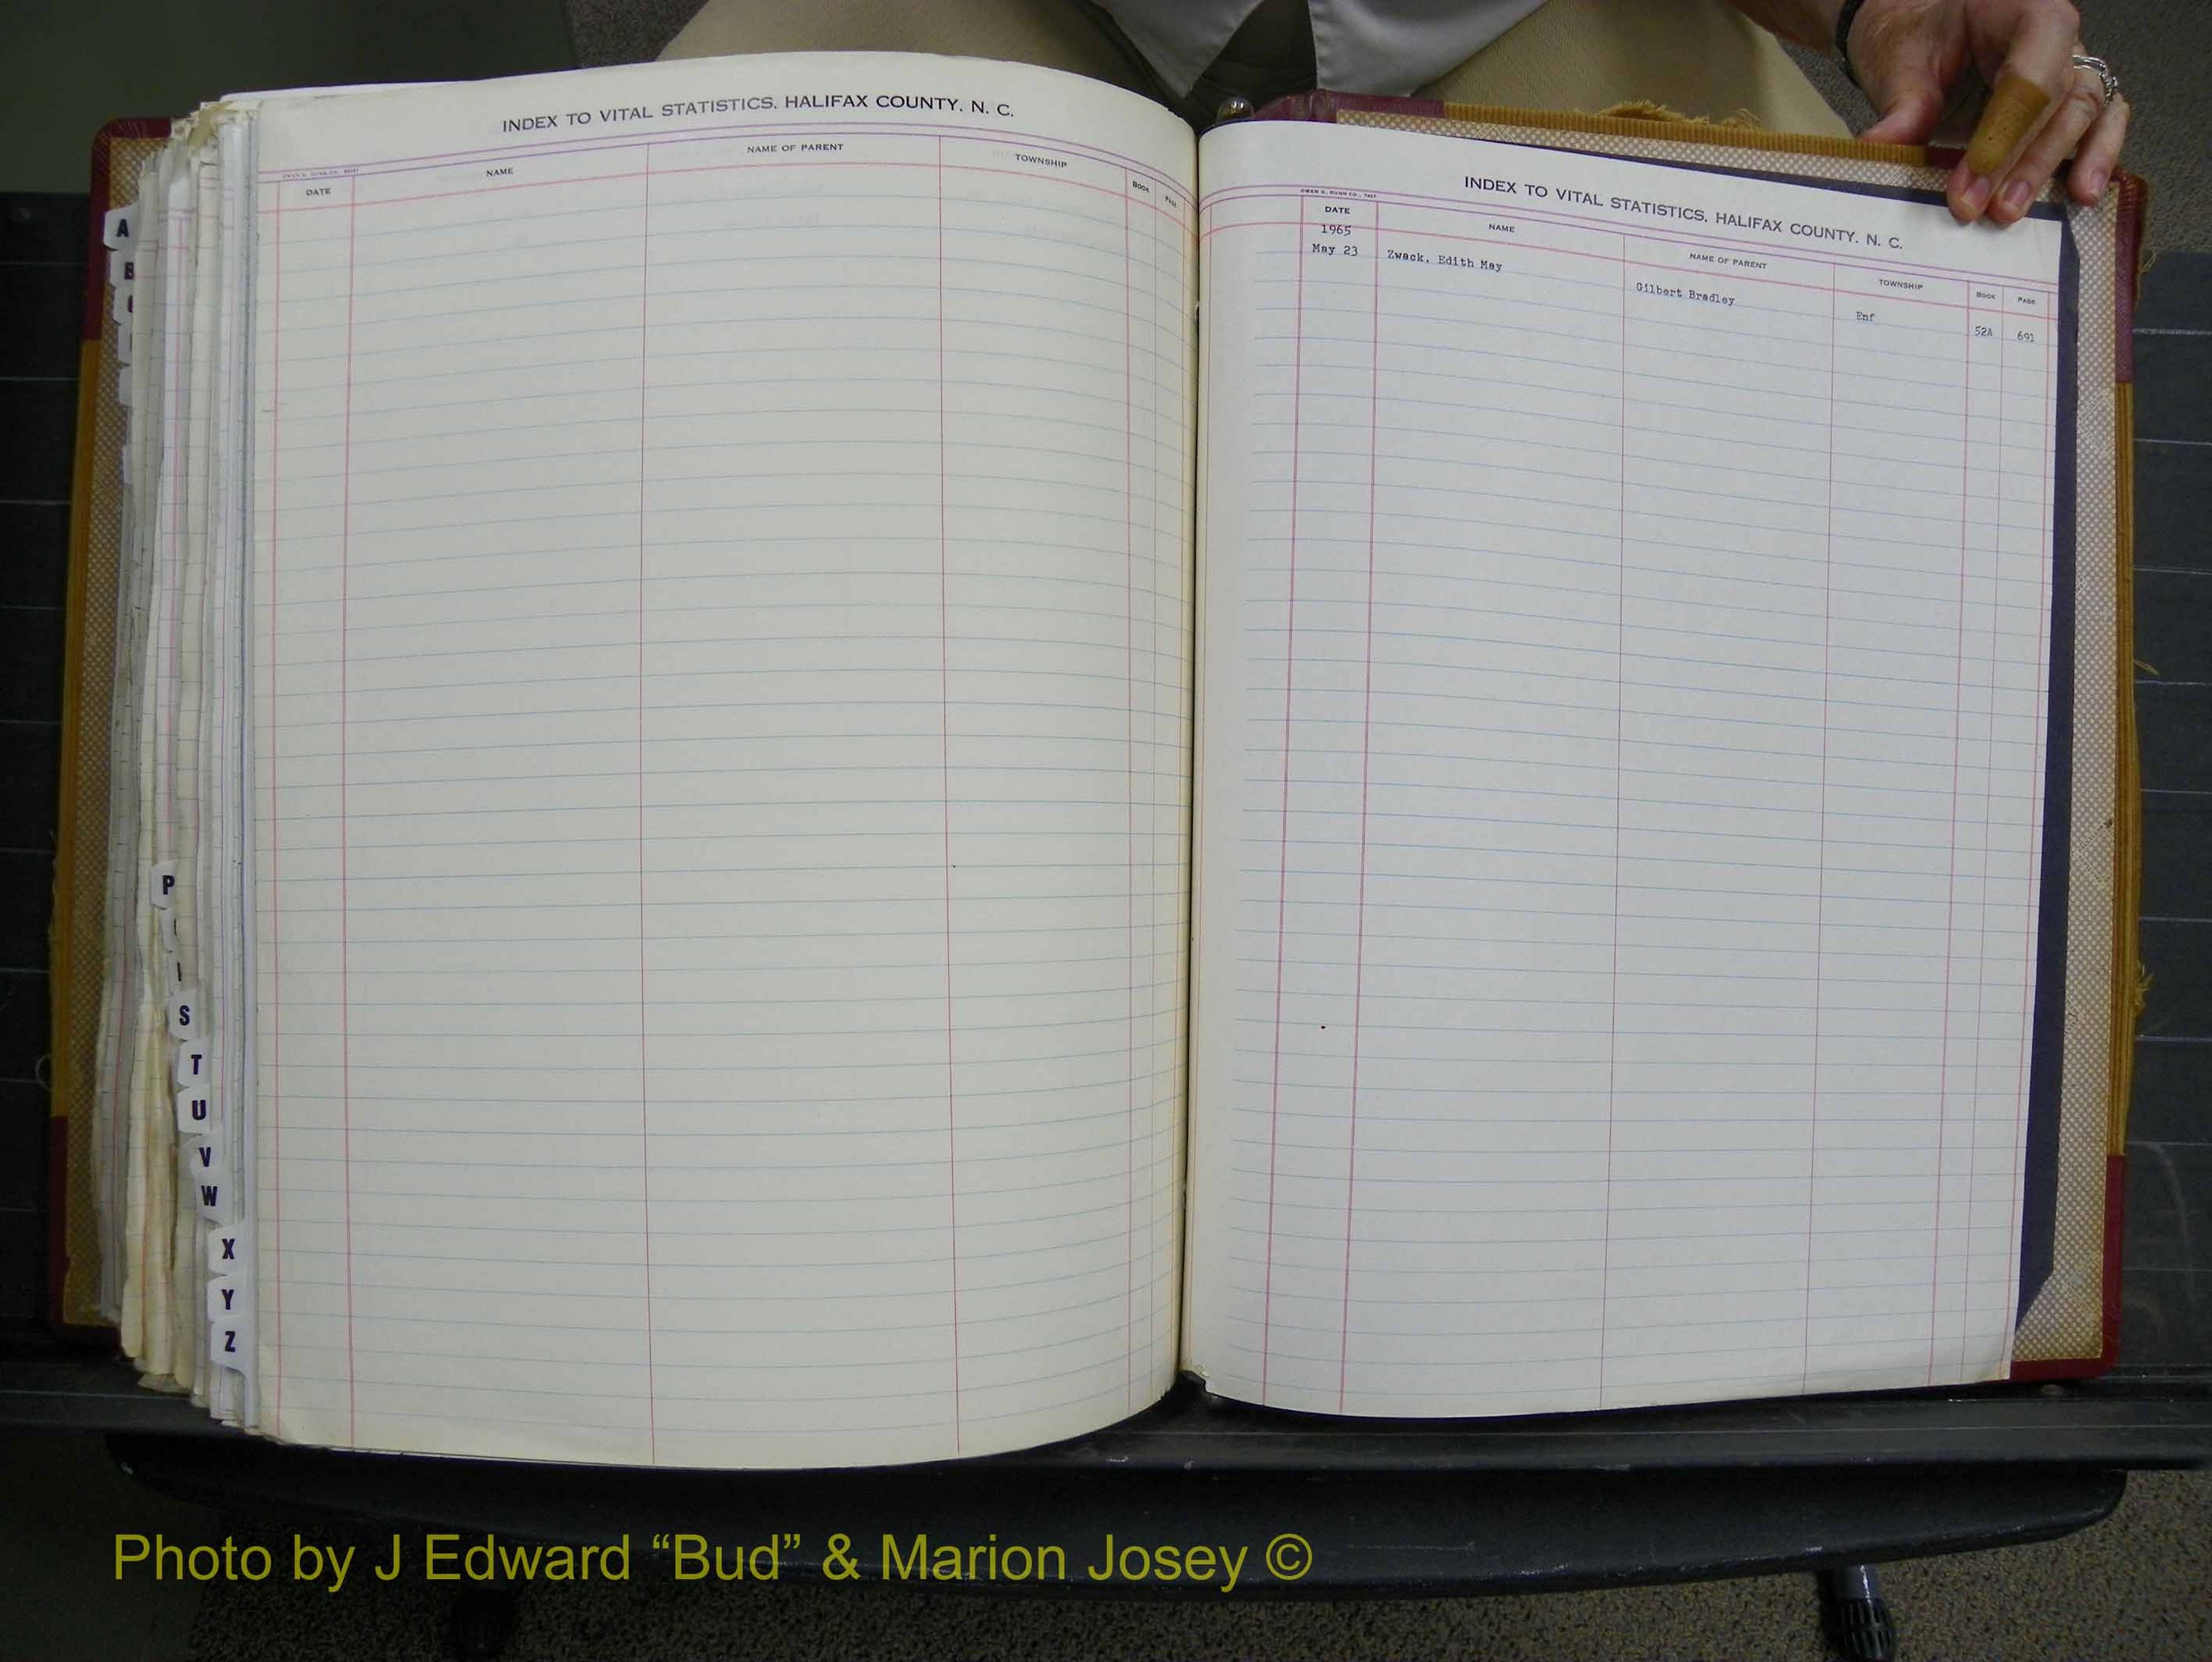 INDEX TO VITAL STATISTICS, HALIFAX COUNTY, N. C.
DATE NAME NAME OF PARENT TOWNSHIP BOOK PAGE
INDEX TO VITAL STATISTICS, HALIFAX COUNTY, N. C.
OWEN G. DUNN CO.,
DATE NAME NAME OF PARENT TOWNSHIP BOOK PAGE
1965
May 23 Zwack, Edith May Gilbert Bradley Enf 52A 691
A
B
P
S
T
U
V
W
X
Y
Z
Photo by J Edward “Bud” & Marion Josey ©